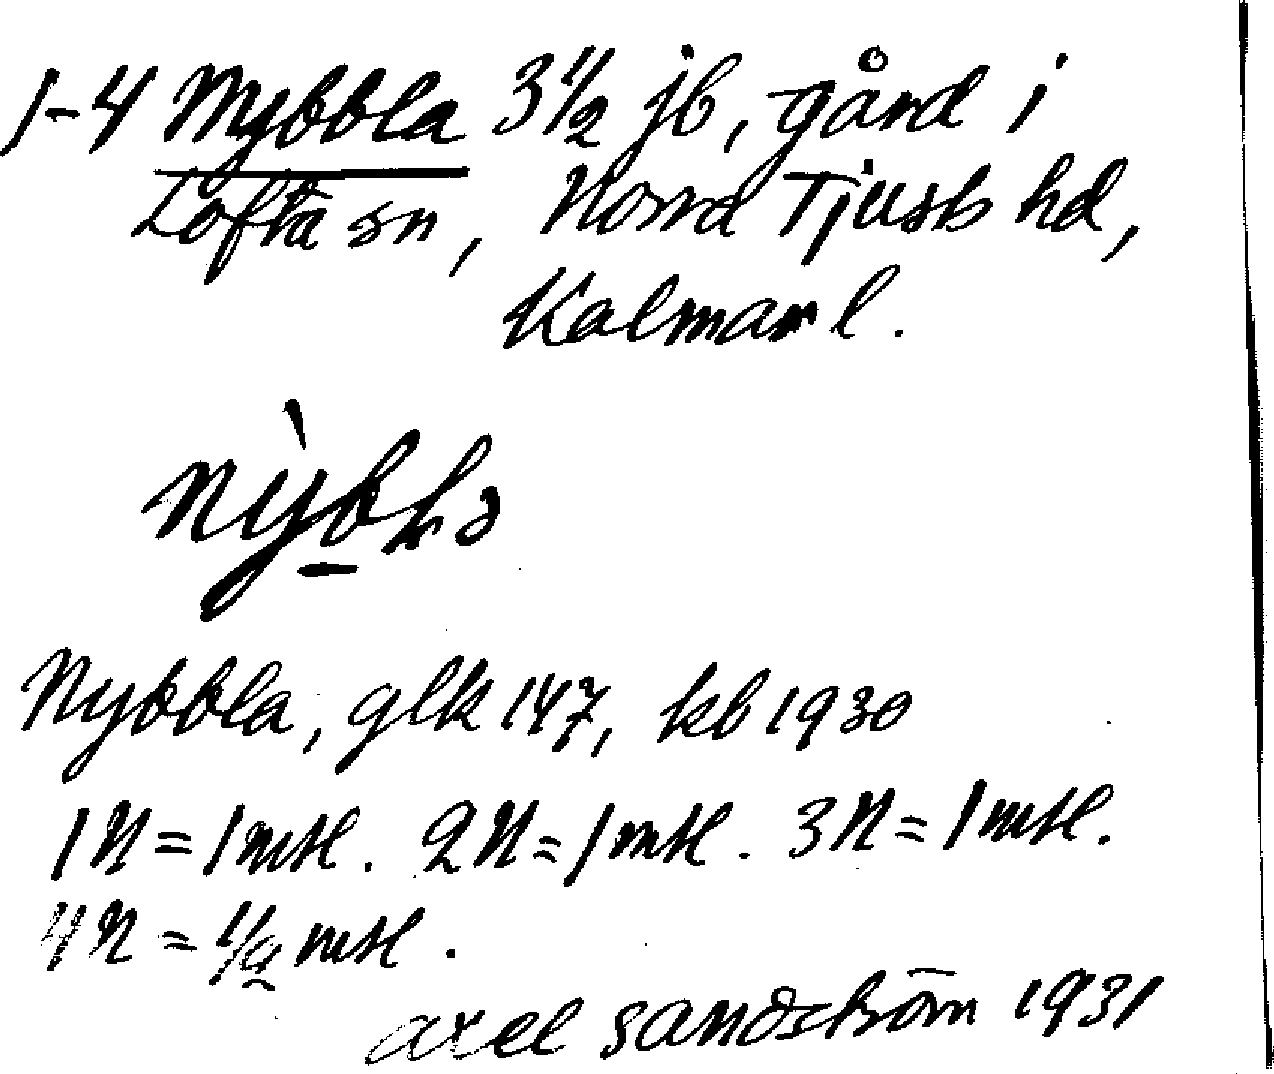 1-4 Nybbla 3 1/2 jb, gård i
Lofta sn, Norra Tjusts hd,
Kalmar l.
Nybbla, glk 147, kb 1930
1N = 1 mtl. 2N = 1 mtl. 3N = 1 mtl.
4N = 1/2 mtl.
axel sandström 1931